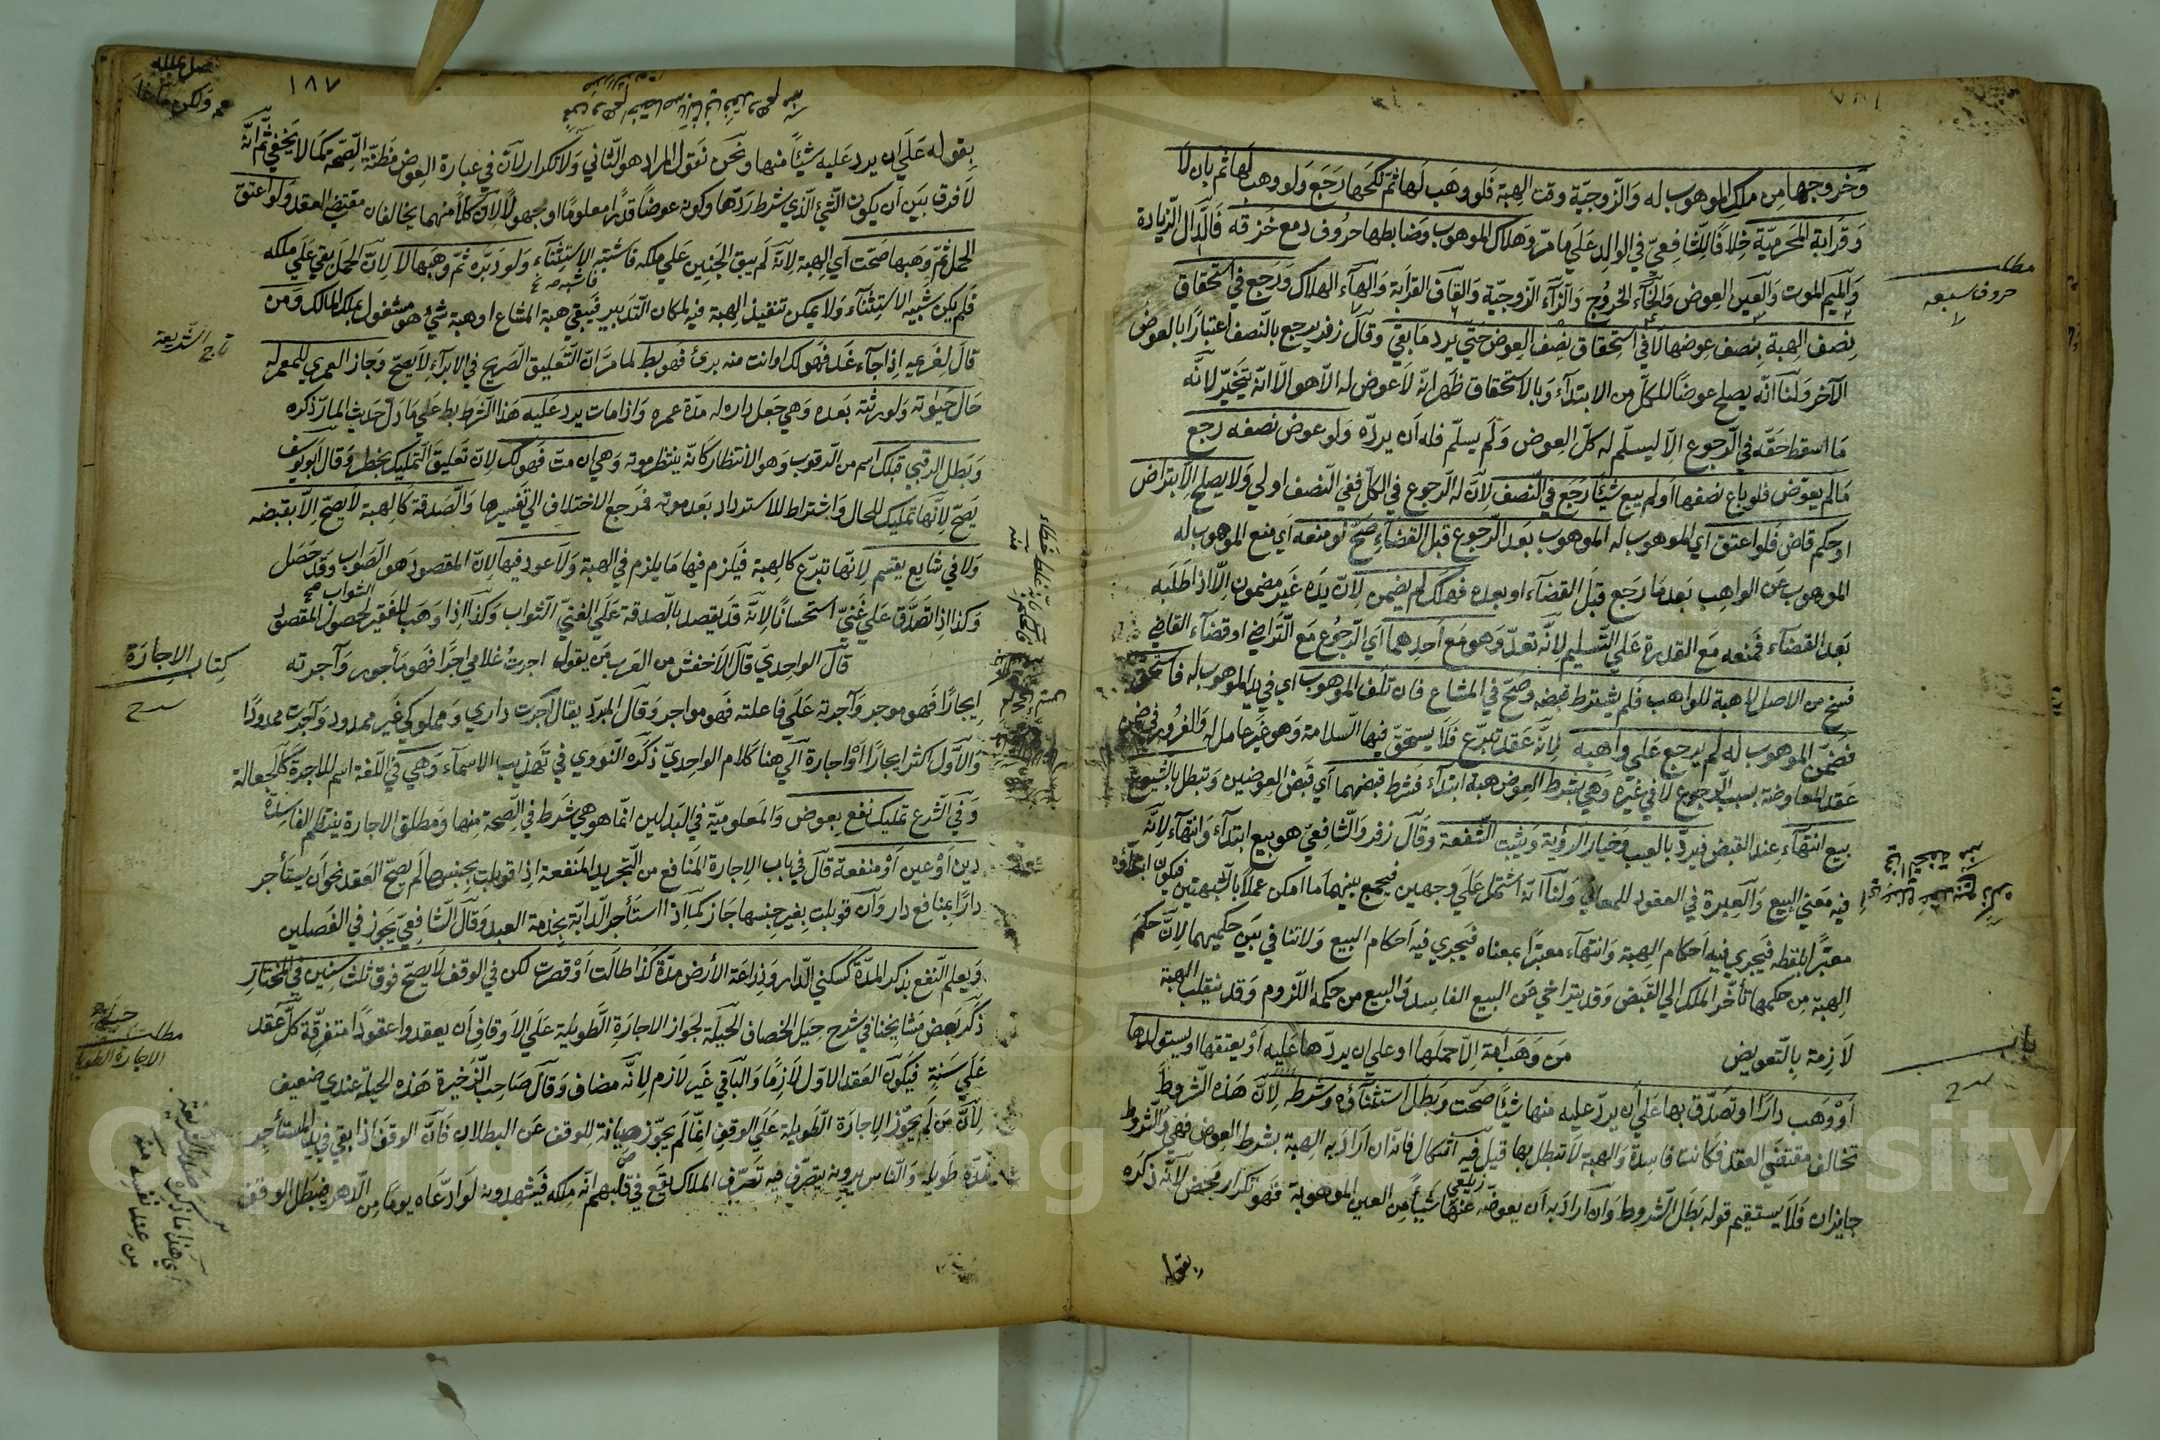 وخروجها من ملك الموهوب له والزوجية وقت الهبة فلو وهب لها ثم نكحها رجع ولو وهب لها ثم بان لا
وقرابة المحرمية خلافا للشافعي في الوالد على ما مر وهلاك الموهوب وضابطها حروف دمع خزقه فالدال الزيادة
والميم الموت والعين العوض والخاء الخروج والزاء الزوجية والقاف القرابة والهاء الهلاك ورجع في استحقاق
نصف الهبة بنصف عوضها لا في استحقاق نصف العوض حتى يرد ما بقي وقال زفر يرجع بالنصف اعتبارا بالعوض
الآخر ولنا انه يصلح عوضا للكل من الابتداء وبالاستحقاق ظهر انه لا عوض له الا هو الا انه يتخير لانه
ما اسقط حقه في الرجوع الا ليسلم له كل العوض ولم يسلم فله ان يرده ولو عوض نصفه رجع
ما لم يعوض فلو باع نصفها او لم يبع شيئا رجع في النصف لان له الرجوع في الكل ففي النصف اولى ولا يصلح الا بتراض
او حكم قاض فلو اعتق اي الموهوب له الموهوب بعد الرجوع قبل القضاء صح لو منعه اي منع الموهوب له
الموهوب عن الواهب بعد ما رجع قبل القضاء او بعده فهلك لم يضمن لان يده غير مضمون الا اذا طلبه
بعد القضاء فمنعه مع القدرة على التسليم لانه تعد وهو مع احدهما اي الرجوع مع التراضي او قضاء القاضي
فسخ من الاصل لا هبة للواهب فلم يشترط قبضه وصح في المشاع فان تلف الموهوب اي في يد الموهوب له فاستحق
فضمن الموهوب له لم يرجع على واهبه لانه عقد تبرع فلا يستحق فيها السلامة وهو غير عامل له والغرور في ضمن
عقد المعاوضة بسبب الرجوع لا في غيره وهي بشرط العوض هبة ابتداء فشرط قبضهما اي قبض العوضين وتبطل بالشيوع
بيع انتهاء عند القبض فيرد بالعيب وخيار الرؤية ويثبت الشفعة وقال زفر والشافعي هو بيع ابتداء وانتهاء لانه
فيه معنى البيع والعبرة في العقود للمعاني ولنا انه اشتمل على وجهين فيجمع بينهما ما امكن عملا بالشبهتين فيكون ابتداؤه
معتبرا بلفظه فيجري فيه احكام الهبة وانتهاء معتبرا بمعناه فيجري فيه احكام البيع ولا تنافي بين حكميهما لان حكم
الهبة من حكمها تأخر الملك الى القبض وقد يتراخى عن البيع الفاسد والبيع من حكمه اللزوم وقد ينقلب الهبة
لازمة بالتعويض من وهب امة الا حملها او على ان يردها عليه او يعتقها او يستولدها
او وهب دارا او تصدق بها على ان يرد عليه منها شيئا صحت وبطل استثناؤه وشرطه لان هذه الشروط
تخالف مقتضى العقد فكانت فاسدة والهبة لا تبطل بها قيل فيه اشكال فانه ان اراد به الهبة بشرط العوض فهي والشرط
جايزان فلا يستقيم قوله بطل الشروط وان اراد به ان يعوضه عنها شيئا من العين الموهوبة فهو تكرار محض لانه ذكره
زيلعي
بقوله
مطلب
حروف سبعه
١٨٧
بقوله على ان يرد عليه شيئا منها ونحن نقول المراد هو الثاني ولا تكرار لان في عبارة العوض مظنة الصحة كما لا يخفى ثم انه
لا فرق بين ان يكون الشيء الذي شرط ردها وكونه عوضا قدرا معلوما او مجهولا لان كلا منهما يخالفان مقتضى العقد ولو اعتق
الحمل ثم وهبها صحت اي الهبة لانه لم يبق الجنين على ملكه فاشبه الاستثناء ولو دبره ثم وهبها لا لان الحمل بقي على ملكه
فلم يكن شبيه الاستثناء ولا يمكن تنفيذ الهبة فيه لمكان التدبير فيبقى هبة المشاع او هبة شيء هو مشغول بملك المالك ومن
قال لغريمه اذا جاء غد فهو لك او انت منه بريء فهو بط لما مر ان التعليق الصريح في الابراء لا يصح وجاز العمري للمعمر له
حال حيوته ولورثته بعده وهي جعل داره له مدة عمره واذا مات يرد عليه هذا الشرط بط على ما دل حديث المار ذكره
وبطل الرقبى قبلك اسم من الرقوب وهو الانتظار كانه ينتظر موته وهي ان مت فهو لك لان تعليق التمليك بخطر وقال ابو يوسف
يصح لانها تمليك للحال واشتراط للاسترداد بعد موته فمرجع الاختلاف الى تفسيرها والصدقة كالهبة لا يصح الا بقبضه
ولا في شايع يقسم لانها تبرع كالهبة فيلزم فيها ما يلزم في الهبة ولا عود فيها لان المقصود هو الصواب وقد حصل
الثواب صح
وكذا اذا تصدق على غني استحسانا لانه قد يقصد بالصدقة على الغني الثواب وكذا اذا وهب للفقير لحصول المقصود
قال الواحدي قال الاخفش من العرب من يقول اجرت غلامي اجرا فهو مأجور وآجرته
ايجارا فهو موجر وآجرته على فاعلته فهو مواجر وقال المبرد يقال آجرت داري ومملوكي غير ممدود وآجرت ممدودا
والاول اكثر ايجارا او اجارة الى هنا كلام الواحدي ذكره النووي في تهذيب الاسماء وهي في اللغة اسم للاجرة كالجعالة
وفي الشرع تمليك نفع بعوض والمعلومية في البدلين انما هو هي شرط في الصحة منها ومطلق الاجارة ينتظم الفاسدة
دين او عين او منفعة قال في باب الاجارة المنافع من التجريد المنفعة اذا قوبلت بجنسها لم يصح العقد نحو ان يستأجر
دارا بمنافع دار وان قوبلت بغير جنسها جاز كما اذا استأجر الدابة بخدمة العبد وقال الشافعي يجوز في الفصلين
ويعلم النفع بذكر المدة كسكنى الدار وزراعة الارض مدة كذا طالت او قصرت لكن في الوقف لا يصح فوق ثلث سنين في المختار
ذكر بعض مشايخنا في شرح حيل الخصاف الحيلة لجواز الاجارة الطويلة على الاوقاف ان يعقدوا عقودا متفرقة كل عقد
على سنة فيكون العقد الاول لازما والباقي غير لازم لانه مضاف وقال صاحب الذخيرة هذه الحيلة عندي ضعيف
لان من لم يجوز الاجارة الطويلة على الوقف انما لم يجوز صيانة للوقف عن البطلان فان الوقف اذا بقي في يد المستأجر
مدة طويلة والناس يرونه يتصرف فيه تصرف الملاك يقع في قلبهم انه ملكه فيشهدونه لو ادعاه يوما من الدهر فيبطل الوقف
تاج الشريعة
كتاب الاجارة
مطلب
الاجارة الطويلة
Copyright © King Saud University